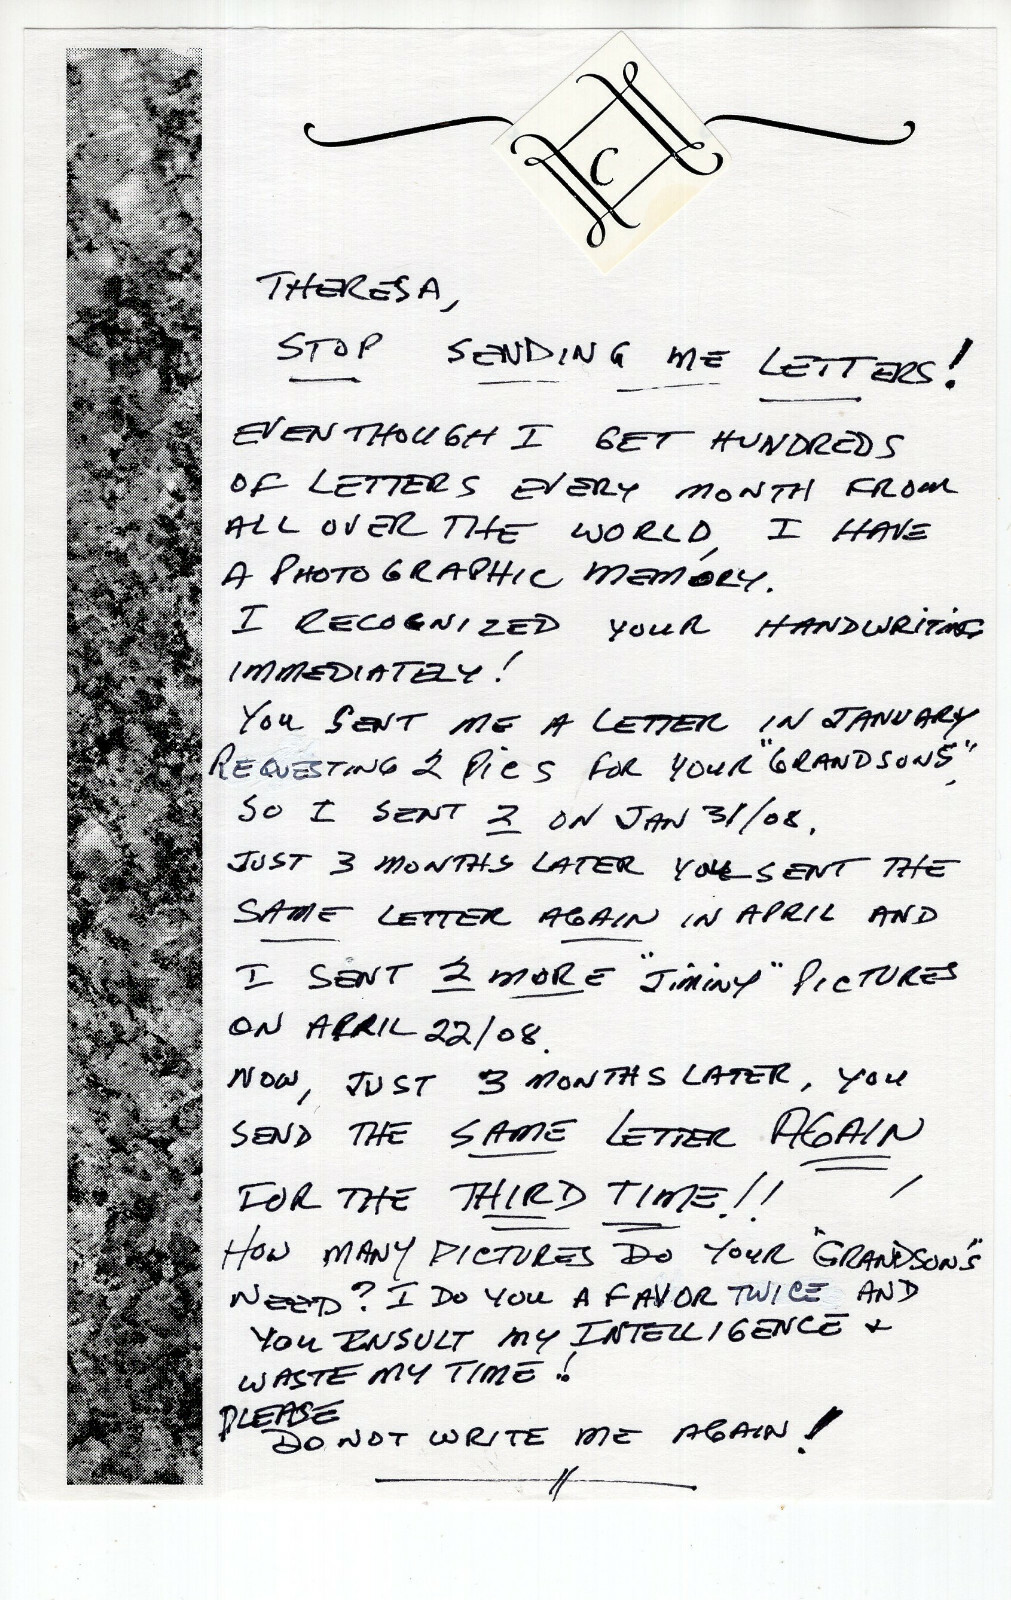 C
THERESA,
STOP SENDING ME LETTERS!
EVENTHOUGH I GET HUNDREDS
OF LETTERS EVERY MONTH FROM
ALL OVER THE WORLD, I HAVE
A PHOTOGRAPHIC MEMORY.
I RECOGNIZED YOUR HANDWRITING
IMMEDIATELY!
YOU SENT ME A LETTER IN JANUARY
REQUESTING 2 PICS FOR YOUR "GRANDSONS",
SO I SENT 2 ON JAN 31/08.
JUST 3 MONTHS LATER YOU SENT THE
SAME LETTER AGAIN IN APRIL AND
I SENT 2 MORE "JIMINY" PICTURES
ON APRIL 22/08.
NOW, JUST 3 MONTHS LATER, YOU
SEND THE SAME LETTER AGAIN
FOR THE THIRD TIME!!
HOW MANY PICTURES DO YOUR "GRANDSONS"
NEED? I DO YOU A FAVOR TWICE AND
YOU INSULT MY INTELLIGENCE +
WASTE MY TIME!
PLEASE
DO NOT WRITE ME AGAIN!